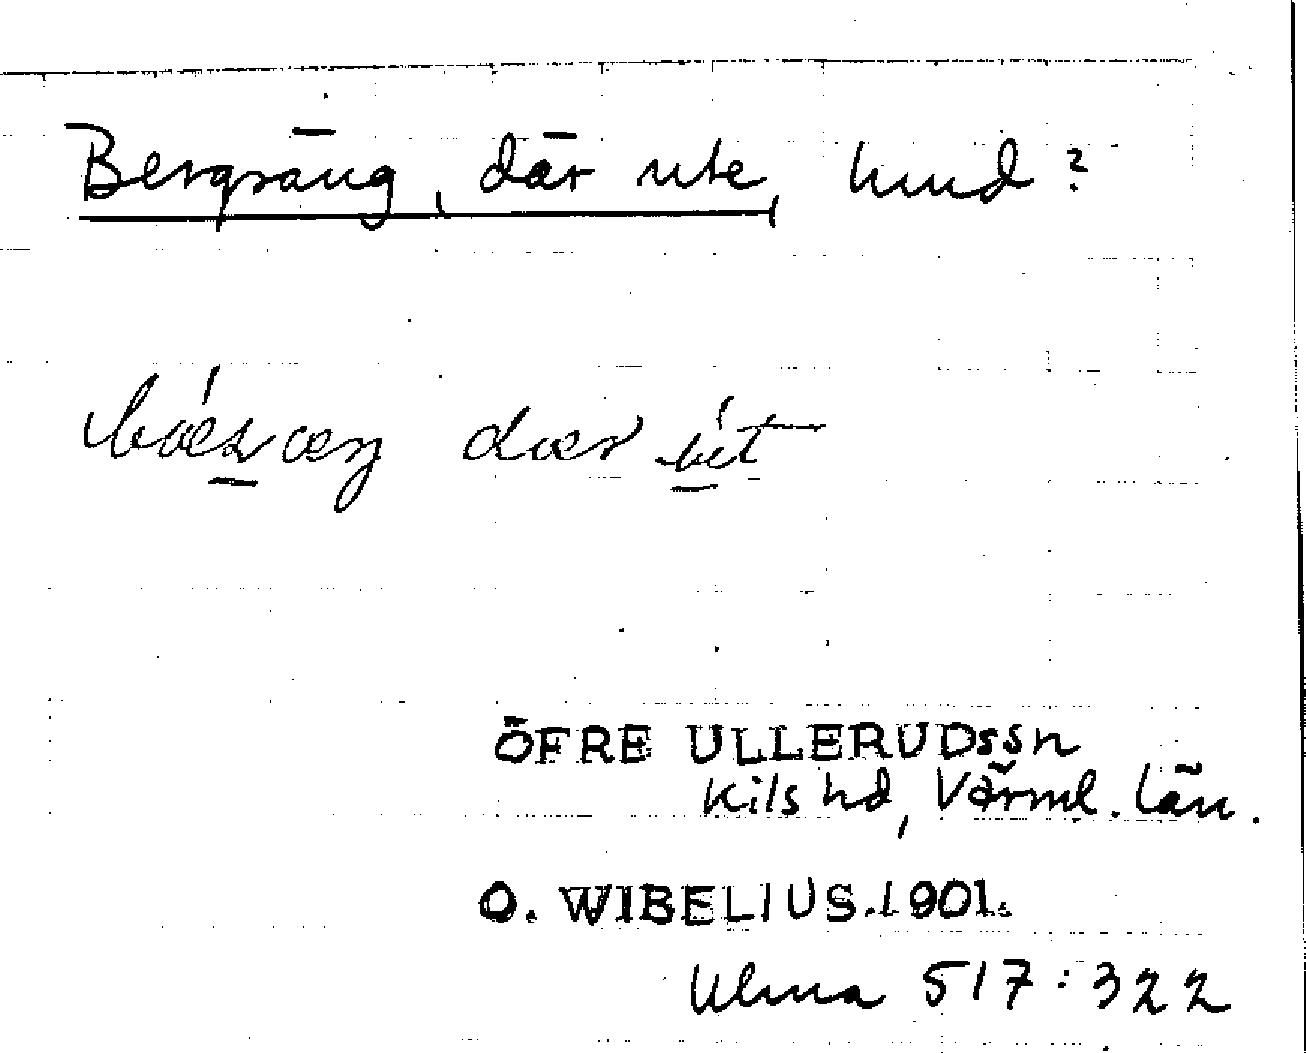 Bergsäng, där ute, hmd?
bǽsæŋ dær ut
ÖFRE ULLERUDssn
Kils hd, Värml. län.
O. WIBELIUS.1901.
Ulma 517:322